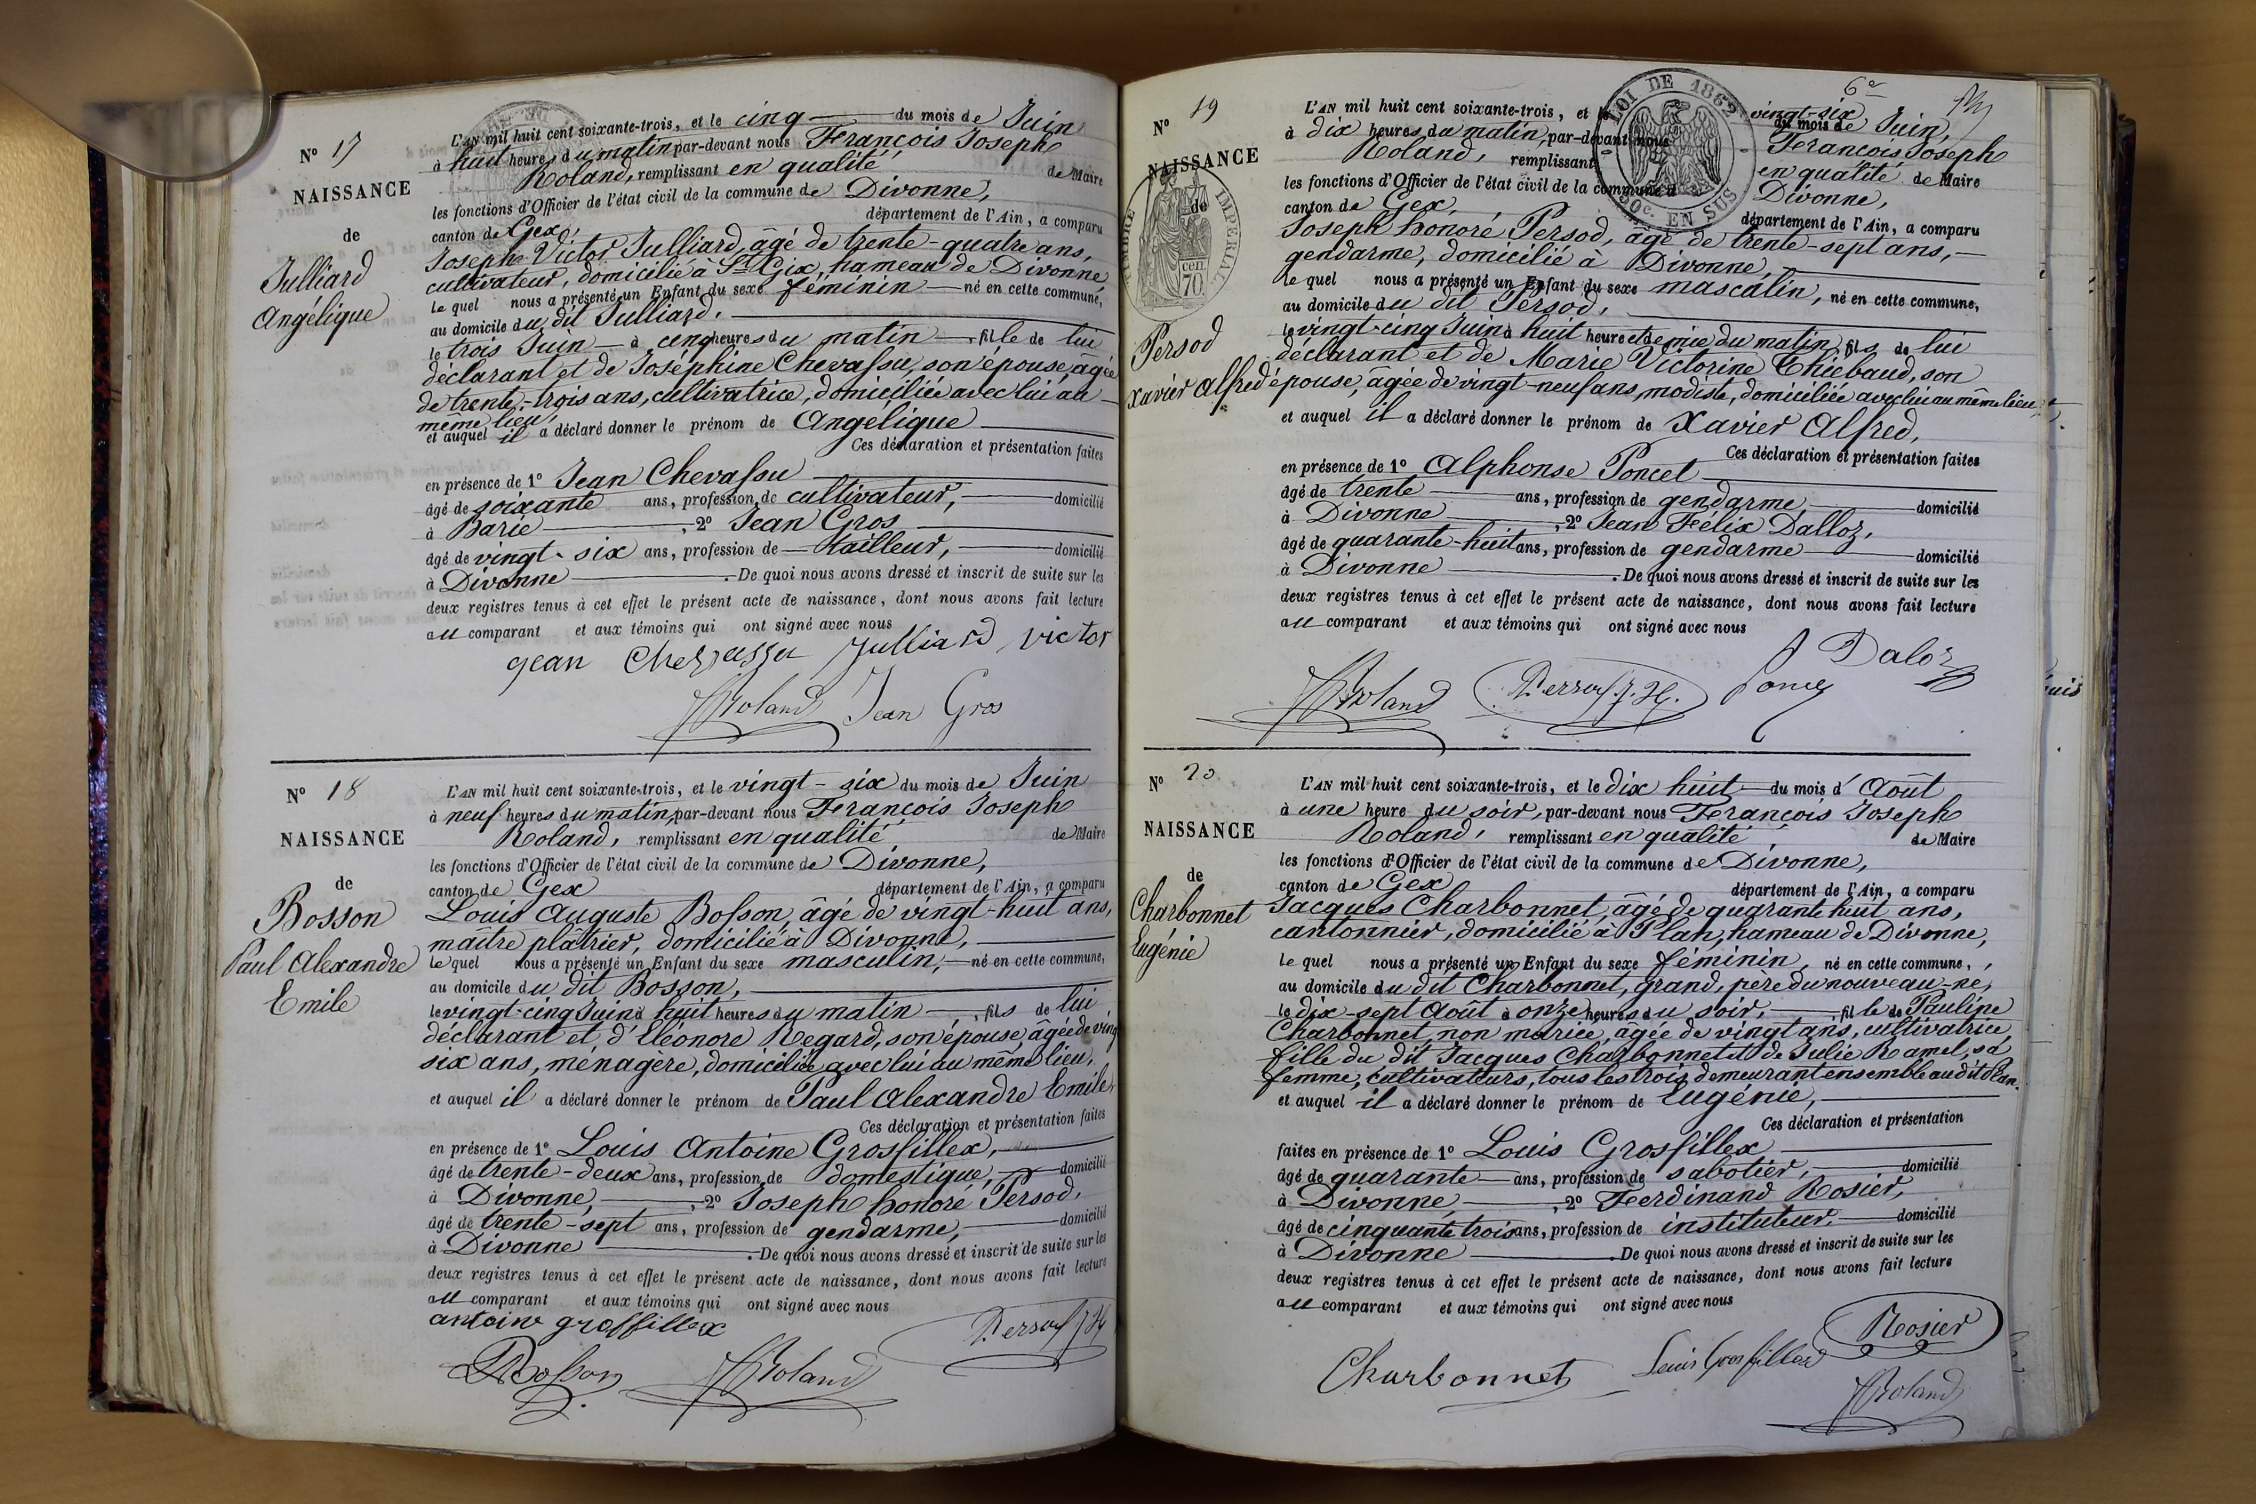 N° 17
NAISSANCE
de
Julliard
Angélique
L'AN mil huit cent soixante-trois, et le cinq du mois de Juin
à huit heures du matin par-devant nous François Joseph
Roland, remplissant en qualité de Maire
les fonctions d'Officier de l'état civil de la commune de Divonne,
canton de Gex, département de l'Ain, a comparu
Joseph Victor Julliard, âgé de trente-quatre ans,
cultivateur, domicilié à St Gix, hameau de Divonne,
le quel nous a présenté un Enfant du sexe féminin né en cette commune,
au domicile du dit Julliard.
le trois Juin à cinq heures du matin, fille de lui
déclarant et de Joséphine Chevassu, son épouse, âgée
de trente-trois ans, cultivatrice, domiciliée avec lui au
même lieu,
et auquel il a déclaré donner le prénom de Angélique
Ces déclaration et présentation faites
en présence de 1° Jean Chevassu
âgé de soixante ans, profession de cultivateur, domicilié
à Barie, 2° Jean Gros
âgé de vingt-six ans, profession de tailleur, domicilié
à Divonne. De quoi nous avons dressé et inscrit de suite sur les
deux registres tenus à cet effet le présent acte de naissance, dont nous avons fait lecture
au comparant et aux témoins qui ont signé avec nous
jean Chevassu Julliard victor
Roland Jean Gros
N° 18
NAISSANCE
de
Bosson
Paul Alexandre
Emile
L'AN mil huit cent soixante-trois, et le vingt-six du mois de Juin
à neuf heures du matin, par-devant nous François Joseph
Roland, remplissant en qualité de Maire
les fonctions d'Officier de l'état civil de la commune de Divonne,
canton de Gex département de l'Ain, a comparu
Louis Auguste Bosson, âgé de vingt-huit ans,
maître plâtrier, domicilié à Divonne,
le quel nous a présenté un Enfant du sexe masculin, né en cette commune,
au domicile du dit Bosson,
le vingt-cinq Juin à huit heures du matin, fils de lui
déclarant et d'Eléonore Regard, son épouse, âgée de vingt
six ans, ménagère, domiciliée avec lui au même lieu,
et auquel il a déclaré donner le prénom de Paul Alexandre Emile,
Ces déclaration et présentation faites
en présence de 1° Louis Antoine Grosfillex,
âgé de trente-deux ans, profession de domestique, domicilié
à Divonne, 2° Joseph honoré Persod,
âgé de trente-sept ans, profession de gendarme, domicilié
à Divonne. De quoi nous avons dressé et inscrit de suite sur les
deux registres tenus à cet effet le présent acte de naissance, dont nous avons fait lecture
au comparant et aux témoins qui ont signé avec nous
antoine grosfillex
Bosson Roland Persod J.H.
6e
N° 19
NAISSANCE
de
TIMBRE IMPERIAL
cen
70
Persod
Xavier Alfred
LOI DE 1862
50c. EN SUS
L'AN mil huit cent soixante-trois, et le vingt-six
du mois de Juin,
à dix heures du matin, par-devant nous François Joseph
Roland, remplissant en qualité de Maire
les fonctions d'Officier de l'état civil de la commune d Divonne,
canton de Gex, département de l'Ain, a comparu
Joseph honoré Persod, âgé de trente-sept ans,
gendarme, domicilié à Divonne,
le quel nous a présenté un Enfant du sexe masculin, né en cette commune,
au domicile du dit Persod,
le vingt-cinq Juin à huit heures et demie du matin, fils de lui
déclarant et de Marie Victorine Thiébaud, son
épouse, âgée de vingt-neuf ans, modiste, domiciliée avec lui au même lieu,
et auquel il a déclaré donner le prénom de Xavier Alfred,
Ces déclaration et présentation faites
en présence de 1° Alphonse Poncet
âgé de trente ans, profession de gendarme, domicilié
à Divonne, 2° Jean Félix Dalloz,
âgé de quarante-huit ans, profession de gendarme domicilié
à Divonne. De quoi nous avons dressé et inscrit de suite sur les
deux registres tenus à cet effet le présent acte de naissance, dont nous avons fait lecture
au comparant et aux témoins qui ont signé avec nous
Daloz
Roland Persod J.H.
N° 20
NAISSANCE
de
Charbonnet
Eugénie
L'AN mil huit cent soixante-trois, et le dix huit du mois d'Août
à une heure du soir, par-devant nous François Joseph
Roland, remplissant en qualité de Maire
les fonctions d'Officier de l'état civil de la commune de Divonne,
canton de Gex département de l'Ain, a comparu
Jacques Charbonnet, âgé de quarante huit ans,
cantonnier, domicilié à Plan, hameau de Divonne,
le quel nous a présenté un Enfant du sexe féminin, né en cette commune,
au domicile du dit Charbonnet, grand, père du nouveau-né,
le dix-sept Août à onze heures du soir, fille de Pauline
Charbonnet, non mariée, âgée de vingt ans, cultivatrice,
fille du dit Jacques Charbonnet et de Julie Ramel, sa
femme, cultivateurs, tous les trois demeurant ensemble au dit Plan.
et auquel il a déclaré donner le prénom de Eugénie,
Ces déclaration et présentation
faites en présence de 1° Louis Grosfillex
âgé de quarante ans, profession de sabotier, domicilié
à Divonne, 2° Ferdinand Rosier,
âgé de cinquante trois ans, profession de instituteur, domicilié
à Divonne. De quoi nous avons dressé et inscrit de suite sur les
deux registres tenus à cet effet le présent acte de naissance, dont nous avons fait lecture
au comparant et aux témoins qui ont signé avec nous
Rosier
Charbonnet Louis Grosfillex
Roland